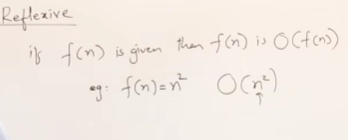 Reflexive
if f(n) is given then f(n) is O(f(n))
eg: f(n)=n² O(n²)
↑